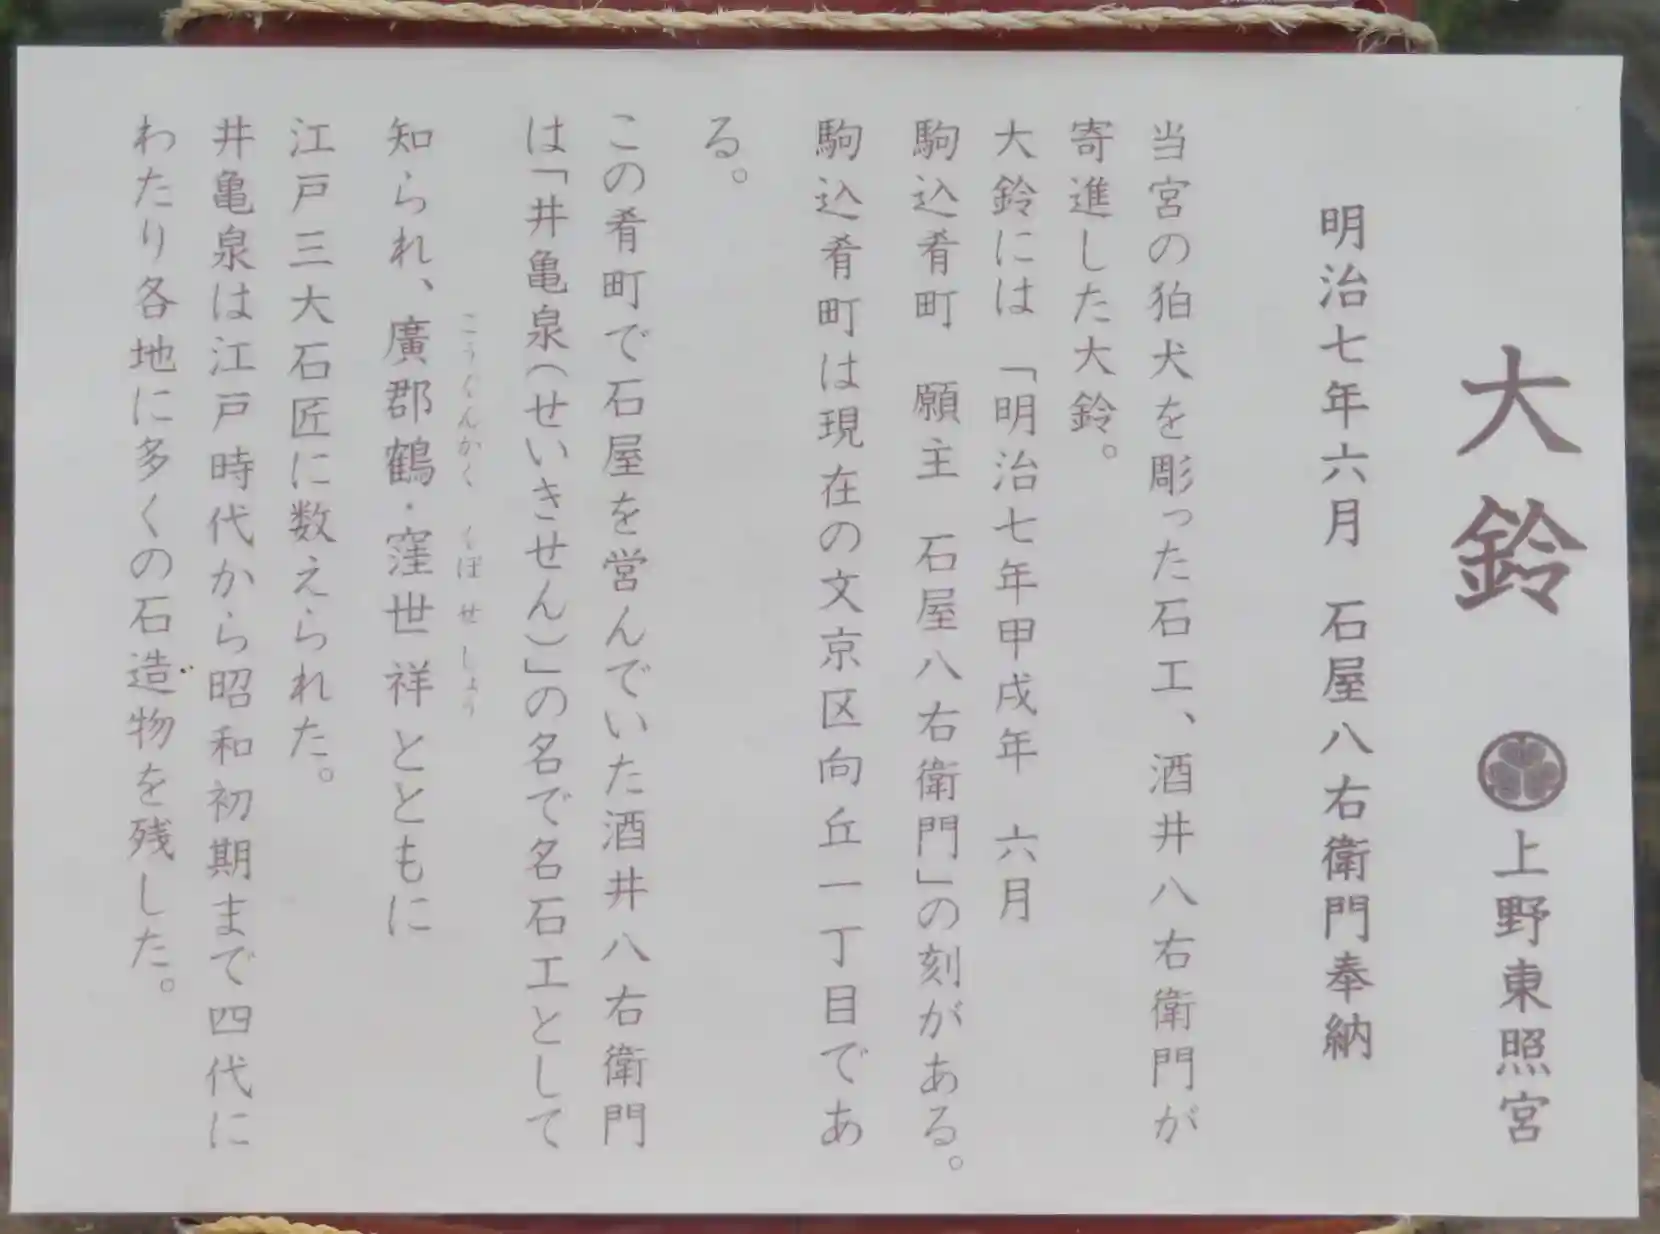 大鈴 上野東照宮
明治七年六月 石屋八右衛門奉納
当宮の狛犬を彫った石工、酒井八右衛門が
寄進した大鈴。
大鈴には 「明治七年甲戌年 六月
駒込肴町 願主 石屋八右衛門」の刻がある。
駒込肴町は現在の文京区向丘一丁目であ
る。
この肴町で石屋を営んでいた酒井八右衛門
は「井亀泉(せいきせん)」の名で名石工として
こうぐんかく くぼ せ しょう
知られ、廣郡鶴・窪世祥とともに
江戸三大石匠に数えられた。
井亀泉は江戸時代から昭和初期まで四代に
わたり各地に多くの石造物を残した。